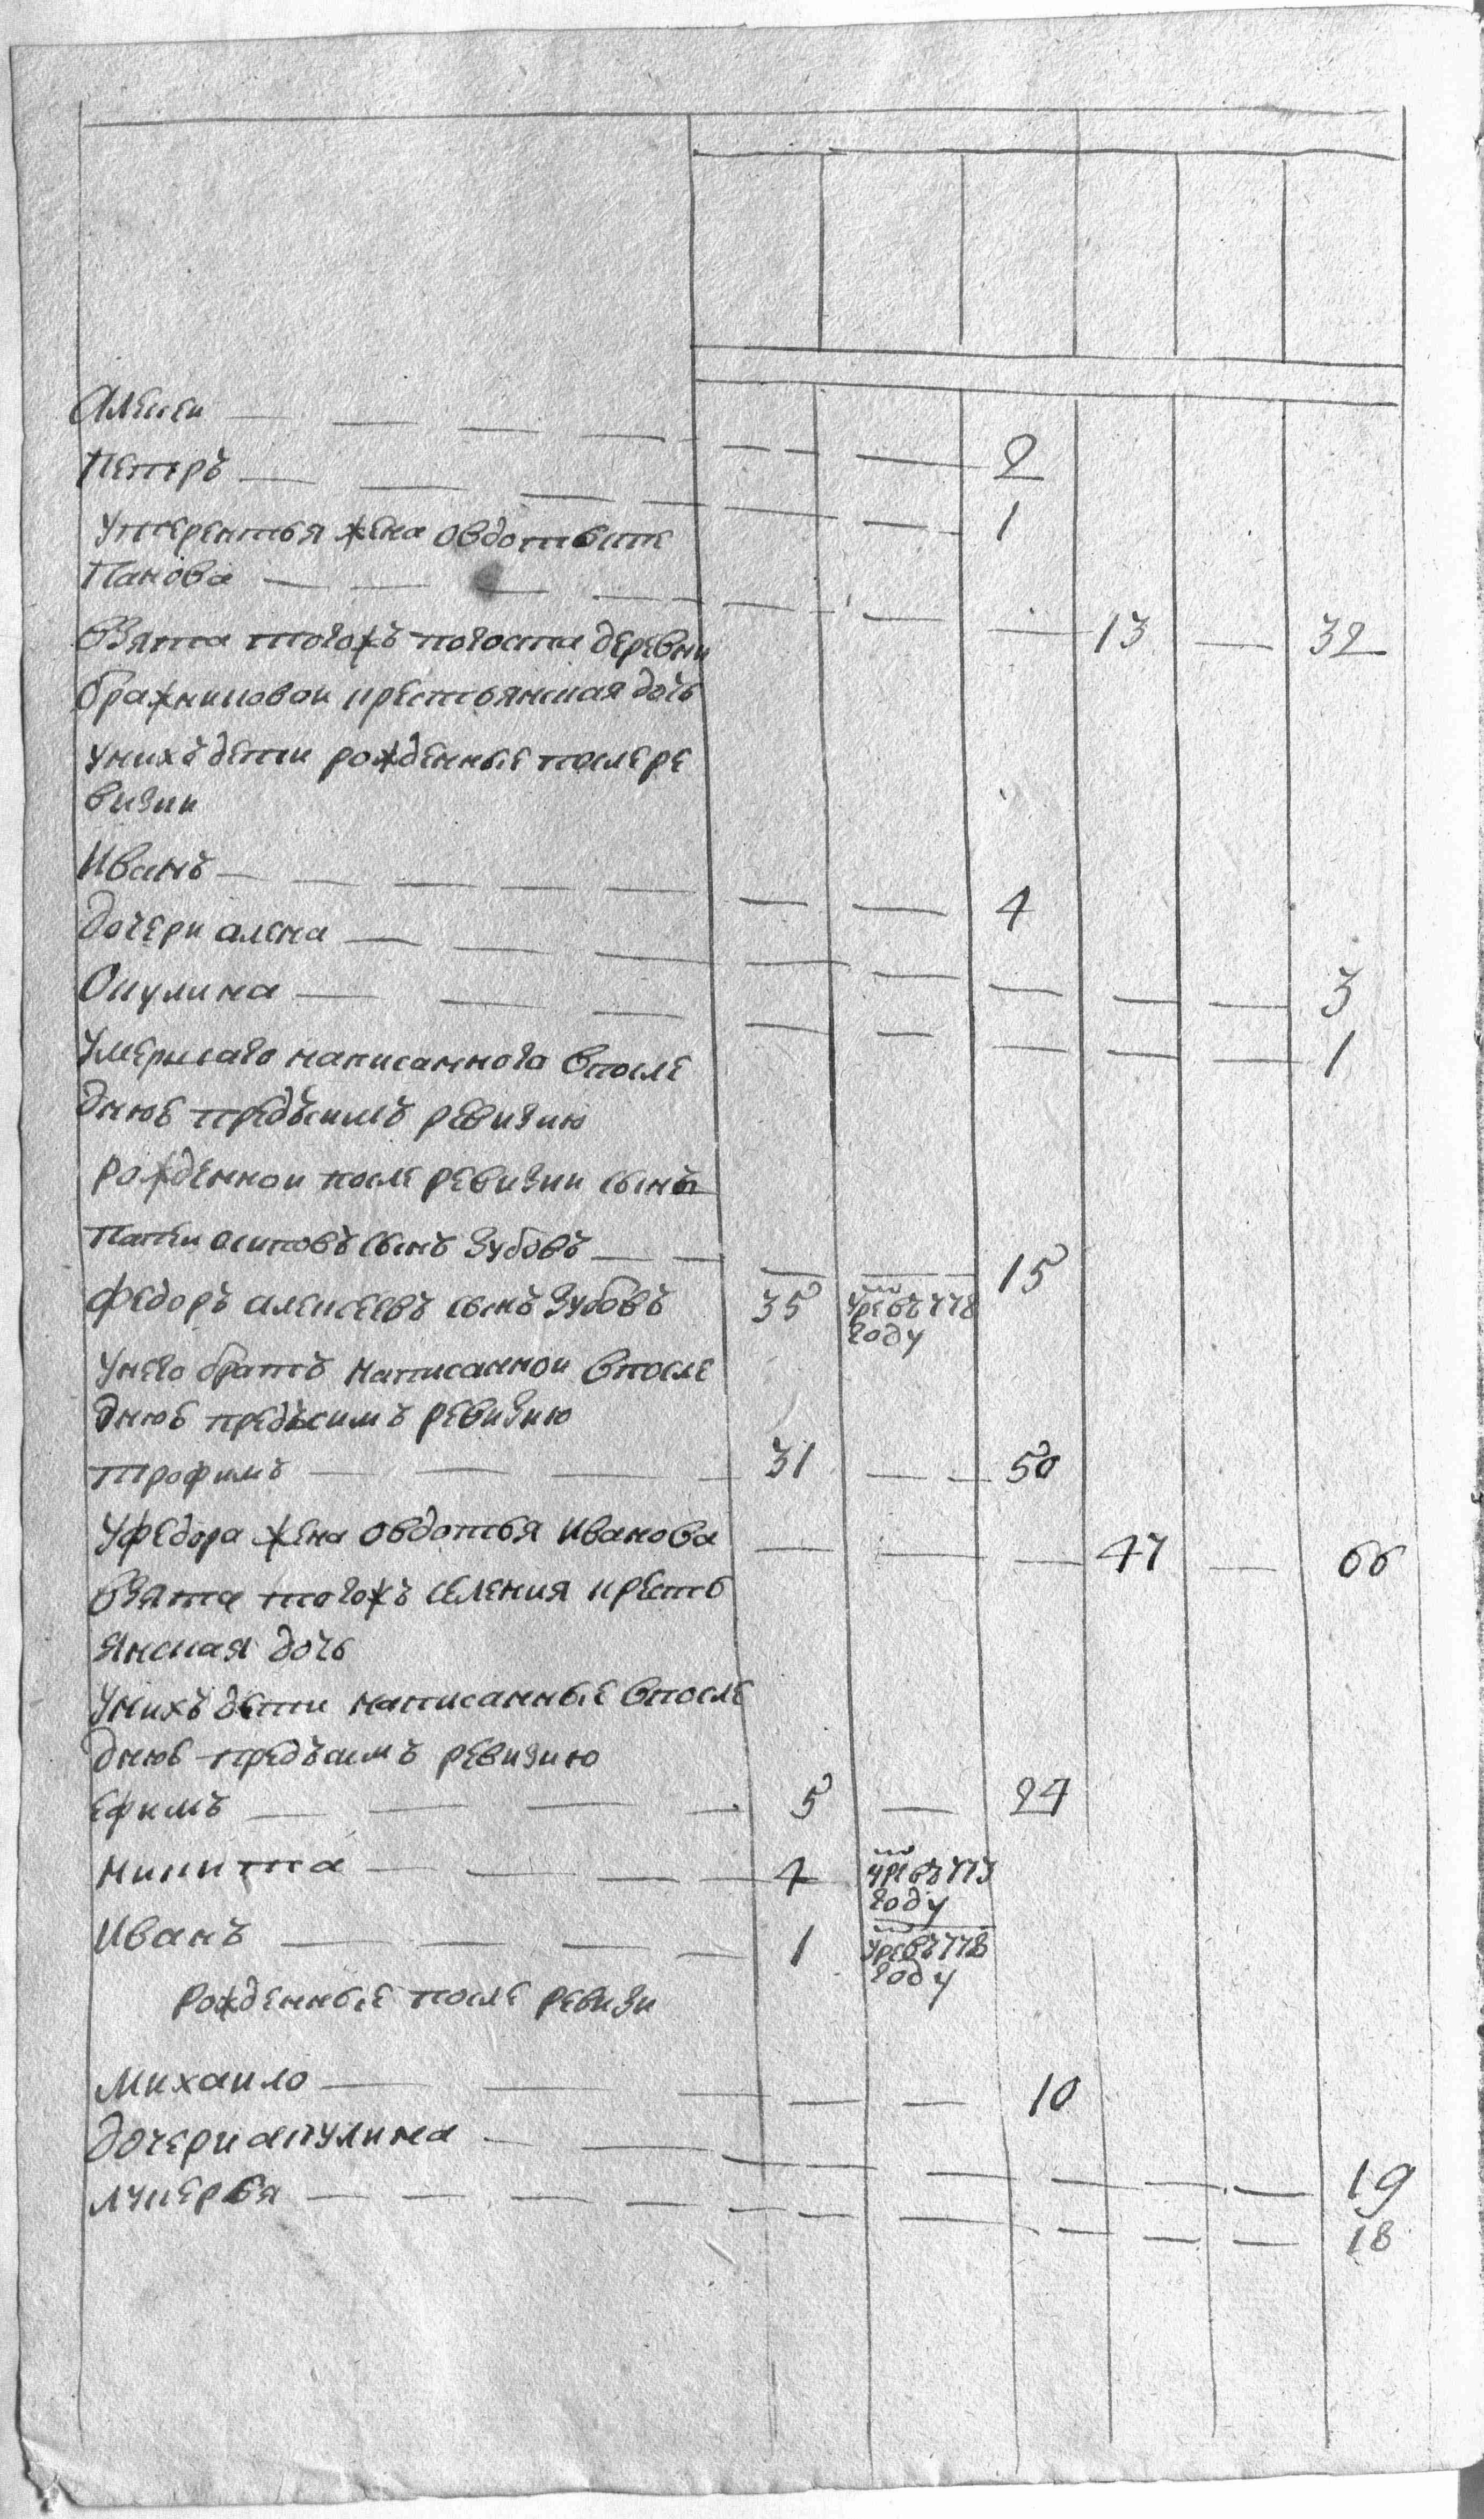 Алексеи — — — — — — — 2
Петръ — — — — — — — 1
Утерентья жена овдотья сте
панова — — — — — — — — 13 — 32
Взята тогожъ погоста деревни
бражниковои крестьянская дочь
Унихъ дети рожденные после ре
визии
Иванъ — — — — — — — 4
дочери алена — — — — — — — — — 3
Окулина — — — — — — — — — 1
Умершаго написаннога впосле
днюю предъсимъ ревизию
рожденнои после ревизии сынъ
осиповъ сынъ Зубовъ — — — — 15
Федоръ алексеевъ сынъ Зубовъ 35 умре въ 778 году
Унего братъ написаннои впосле
днюю предъсимъ ревизию
трофимъ — — — — 31 — — 50
Уфедора жена овдотья Иванова — — — 47 — 66
Взята тогожъ селения кресть
янская дочь
Унихъ дети написанные впосле
днюю предъсимъ ревизию
ефимъ — — — — 5 — 24
никита — — — — 4 умре въ 773 году
Иванъ — — — — 1 умре въ 778 году
рожденные после ревизи
михаило — — — — — 10
дочери акулина — — — — — — — 19
лукерья — — — — — — — — — — 18